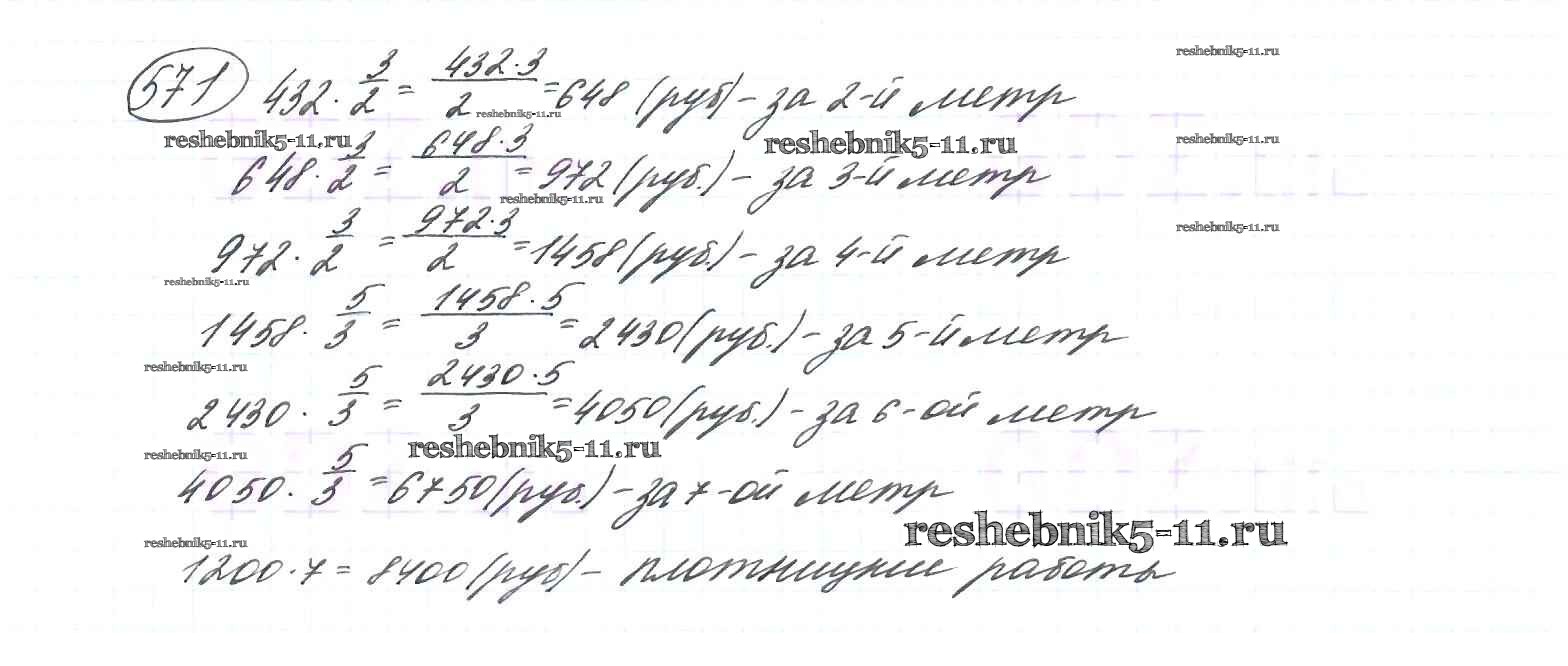 reshebnik5-11.ru
571 432 · 3/2 = 432·3/2 = 648 (руб) – за 2-й метр
reshebnik5-11.ru
reshebnik5-11.ru reshebnik5-11.ru reshebnik5-11.ru
648 · 3/2 = 648·3/2 = 972 (руб.) – за 3-й метр
reshebnik5-11.ru
reshebnik5-11.ru
972 · 3/2 = 972·3/2 = 1458 (руб.) – за 4-й метр
reshebnik5-11.ru
1458 · 5/3 = 1458·5/3 = 2430 (руб.) – за 5-й метр
reshebnik5-11.ru
2430 · 5/3 = 2430·5/3 = 4050 (руб.) – за 6-ой метр
reshebnik5-11.ru reshebnik5-11.ru
4050 · 5/3 = 6750 (руб.) – за 7-ой метр
reshebnik5-11.ru
reshebnik5-11.ru
1200·7 = 8400 (руб) – плотницкие работы